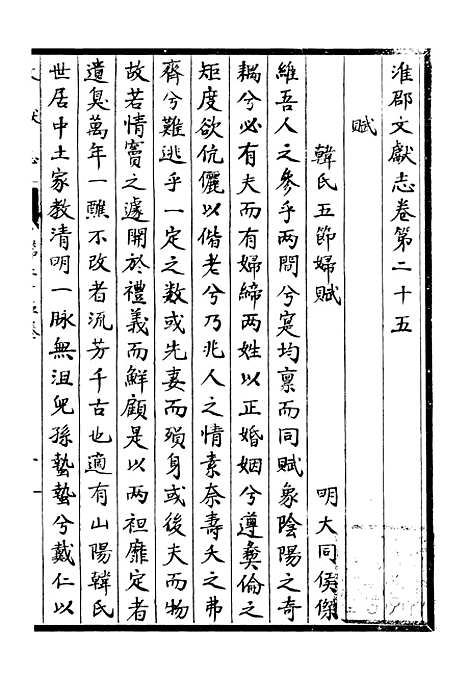 淮郡文獻志卷第二十五
賦
韓氏五節婦賦 明大同侯傑
維吾人之參乎兩間兮寔均稟而同賦象陰陽之奇
耦兮必有夫而有婦締兩姓以正婚姻兮遵彝倫之
矩度欲伉儷以偕老兮乃兆人之情素奈壽夭之弗
齊兮難逃乎一定之数或先妻而殞身或後夫而物
故若情竇之遽開於禮義而鮮顧是以兩袒靡定者
遺臭萬年一醮不改者流芳千古也適有山陽韓氏
世居中土家教清明一脉無沮兒孫蟄蟄兮戴仁以